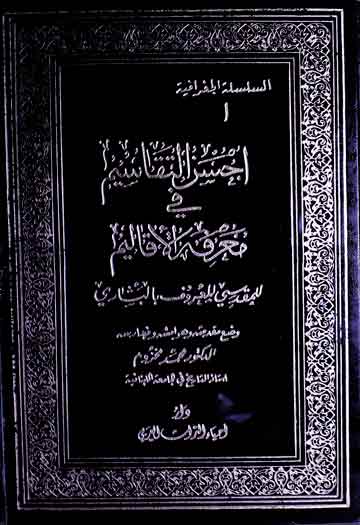 السلسلة الجغرافية
١
احسن التقاسيم
في
معرفة الأقاليم
للمقدسي المعروف بالبشاري
وضع مقدمته وهوامشه وفهارسه
الدكتور محمد مخزوم
استاذ التاريخ في الجامعة اللبنانية
دار
احياء التراث العربي